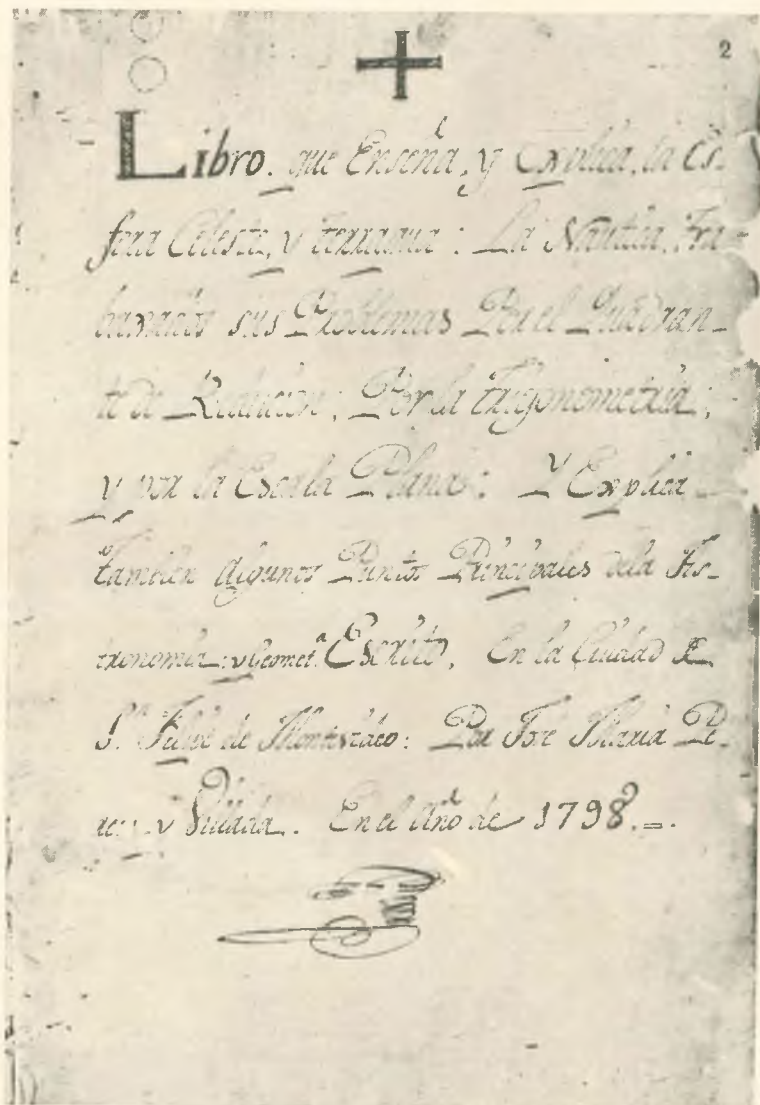 2
Libro. que Enseña, y Explica, la Es-
fera Celeste, y terraquea: La Nautica, Tra-
bajando sus Problemas Por el Quadran-
te de Reducion; Por la trigonometria;
y por la Escala Plana: Y Explica
tambien algunos Puntos Principales dela As-
tronomia: y Geomet.a Escrito, En la Ciudad de
S.n Felipe de Montevideo: Por José Maria
y En el año de 1798.=.